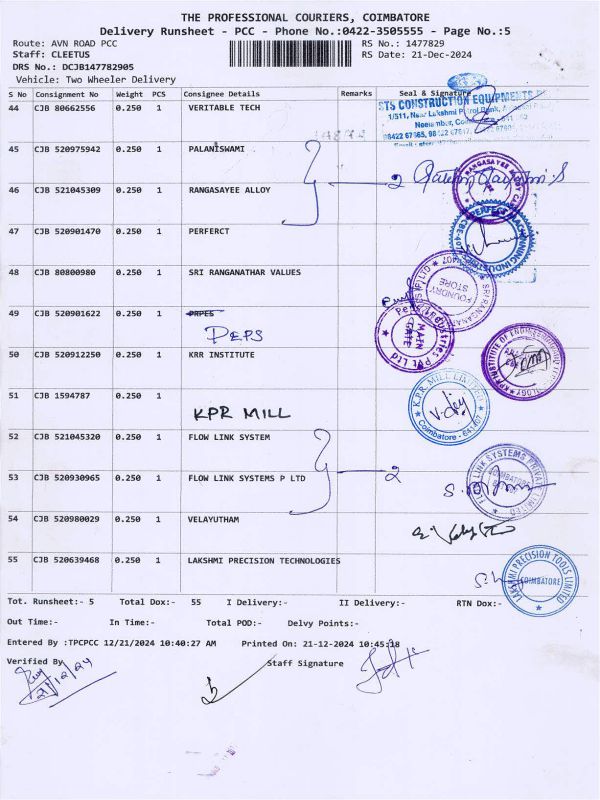 THE PROFESSIONAL COURIERS, COIMBATORE
Delivery Runsheet - PCC - Phone No.:0422-3505555 - Page No.:5
Route: AVN ROAD PCC RS No.: 1477829
Staff: CLEETUS RS Date: 21-Dec-2024
DRS No.: DCJB147782905
Vehicle: Two Wheeler Delivery
S No Consignment No Weight PCS Consignee Details Remarks Seal & Signature
44 CJB 80662556 0.250 1 VERITABLE TECH
STS CONSTRUCTION EQUIPMENTS
45 CJB 520975942 0.250 1 PALANISWAMI
2
46 CJB 521045309 0.250 1 RANGASAYEE ALLOY
47 CJB 520901470 0.250 1 PERFERCT
48 CJB 80800980 0.250 1 SRI RANGANATHAR VALUES
FOUNDRY STORE
49 CJB 520901622 0.250 1 PRPES
PEPS
MAIN GATE
50 CJB 520912250 0.250 1 KRR INSTITUTE
51 CJB 1594787 0.250 1
KPR MILL
K.P.R. MILL LIMITED
Coimbatore - 641407
52 CJB 521045320 0.250 1 FLOW LINK SYSTEM
2
53 CJB 520930965 0.250 1 FLOW LINK SYSTEMS P LTD
FLOW LINK SYSTEMS PRIVATE LIMITED
54 CJB 520980029 0.250 1 VELAYUTHAM
55 CJB 520639468 0.250 1 LAKSHMI PRECISION TECHNOLOGIES
LAKSHMI PRECISION TOOLS LIMITED
COIMBATORE
Tot. Runsheet:- 5 Total Dox:- 55 I Delivery:- II Delivery:- RTN Dox:-
Out Time:- In Time:- Total POD:- Delvy Points:-
Entered By :TPCPCC 12/21/2024 10:40:27 AM Printed On: 21-12-2024 10:45:18
Verified By Staff Signature
21/12/24